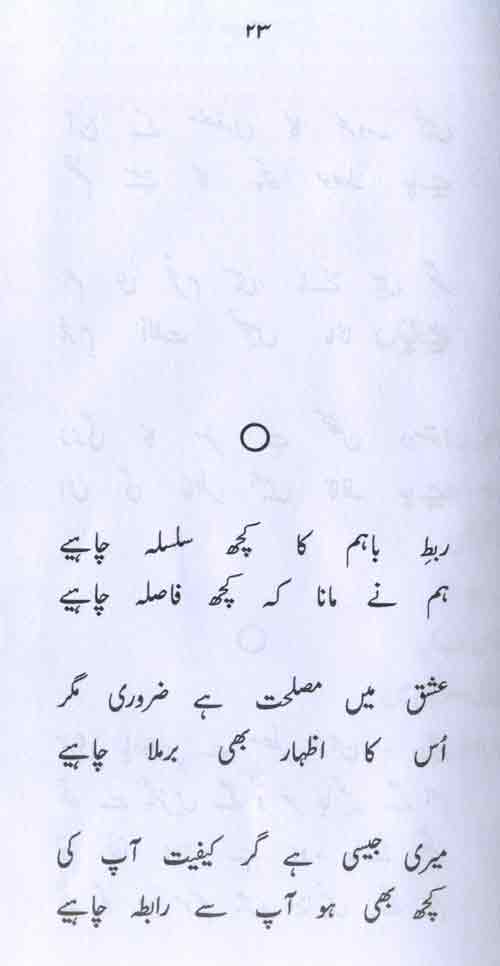 ۲۳
ربطِ باہم کا کچھ سلسلہ چاہیے
ہم نے مانا کہ کچھ فاصلہ چاہیے
عشق میں مصلحت ہے ضروری مگر
اُس کا اظہار بھی برملا چاہیے
میری جیسی ہے گر کیفیت آپ کی
کچھ بھی ہو آپ سے رابطہ چاہیے